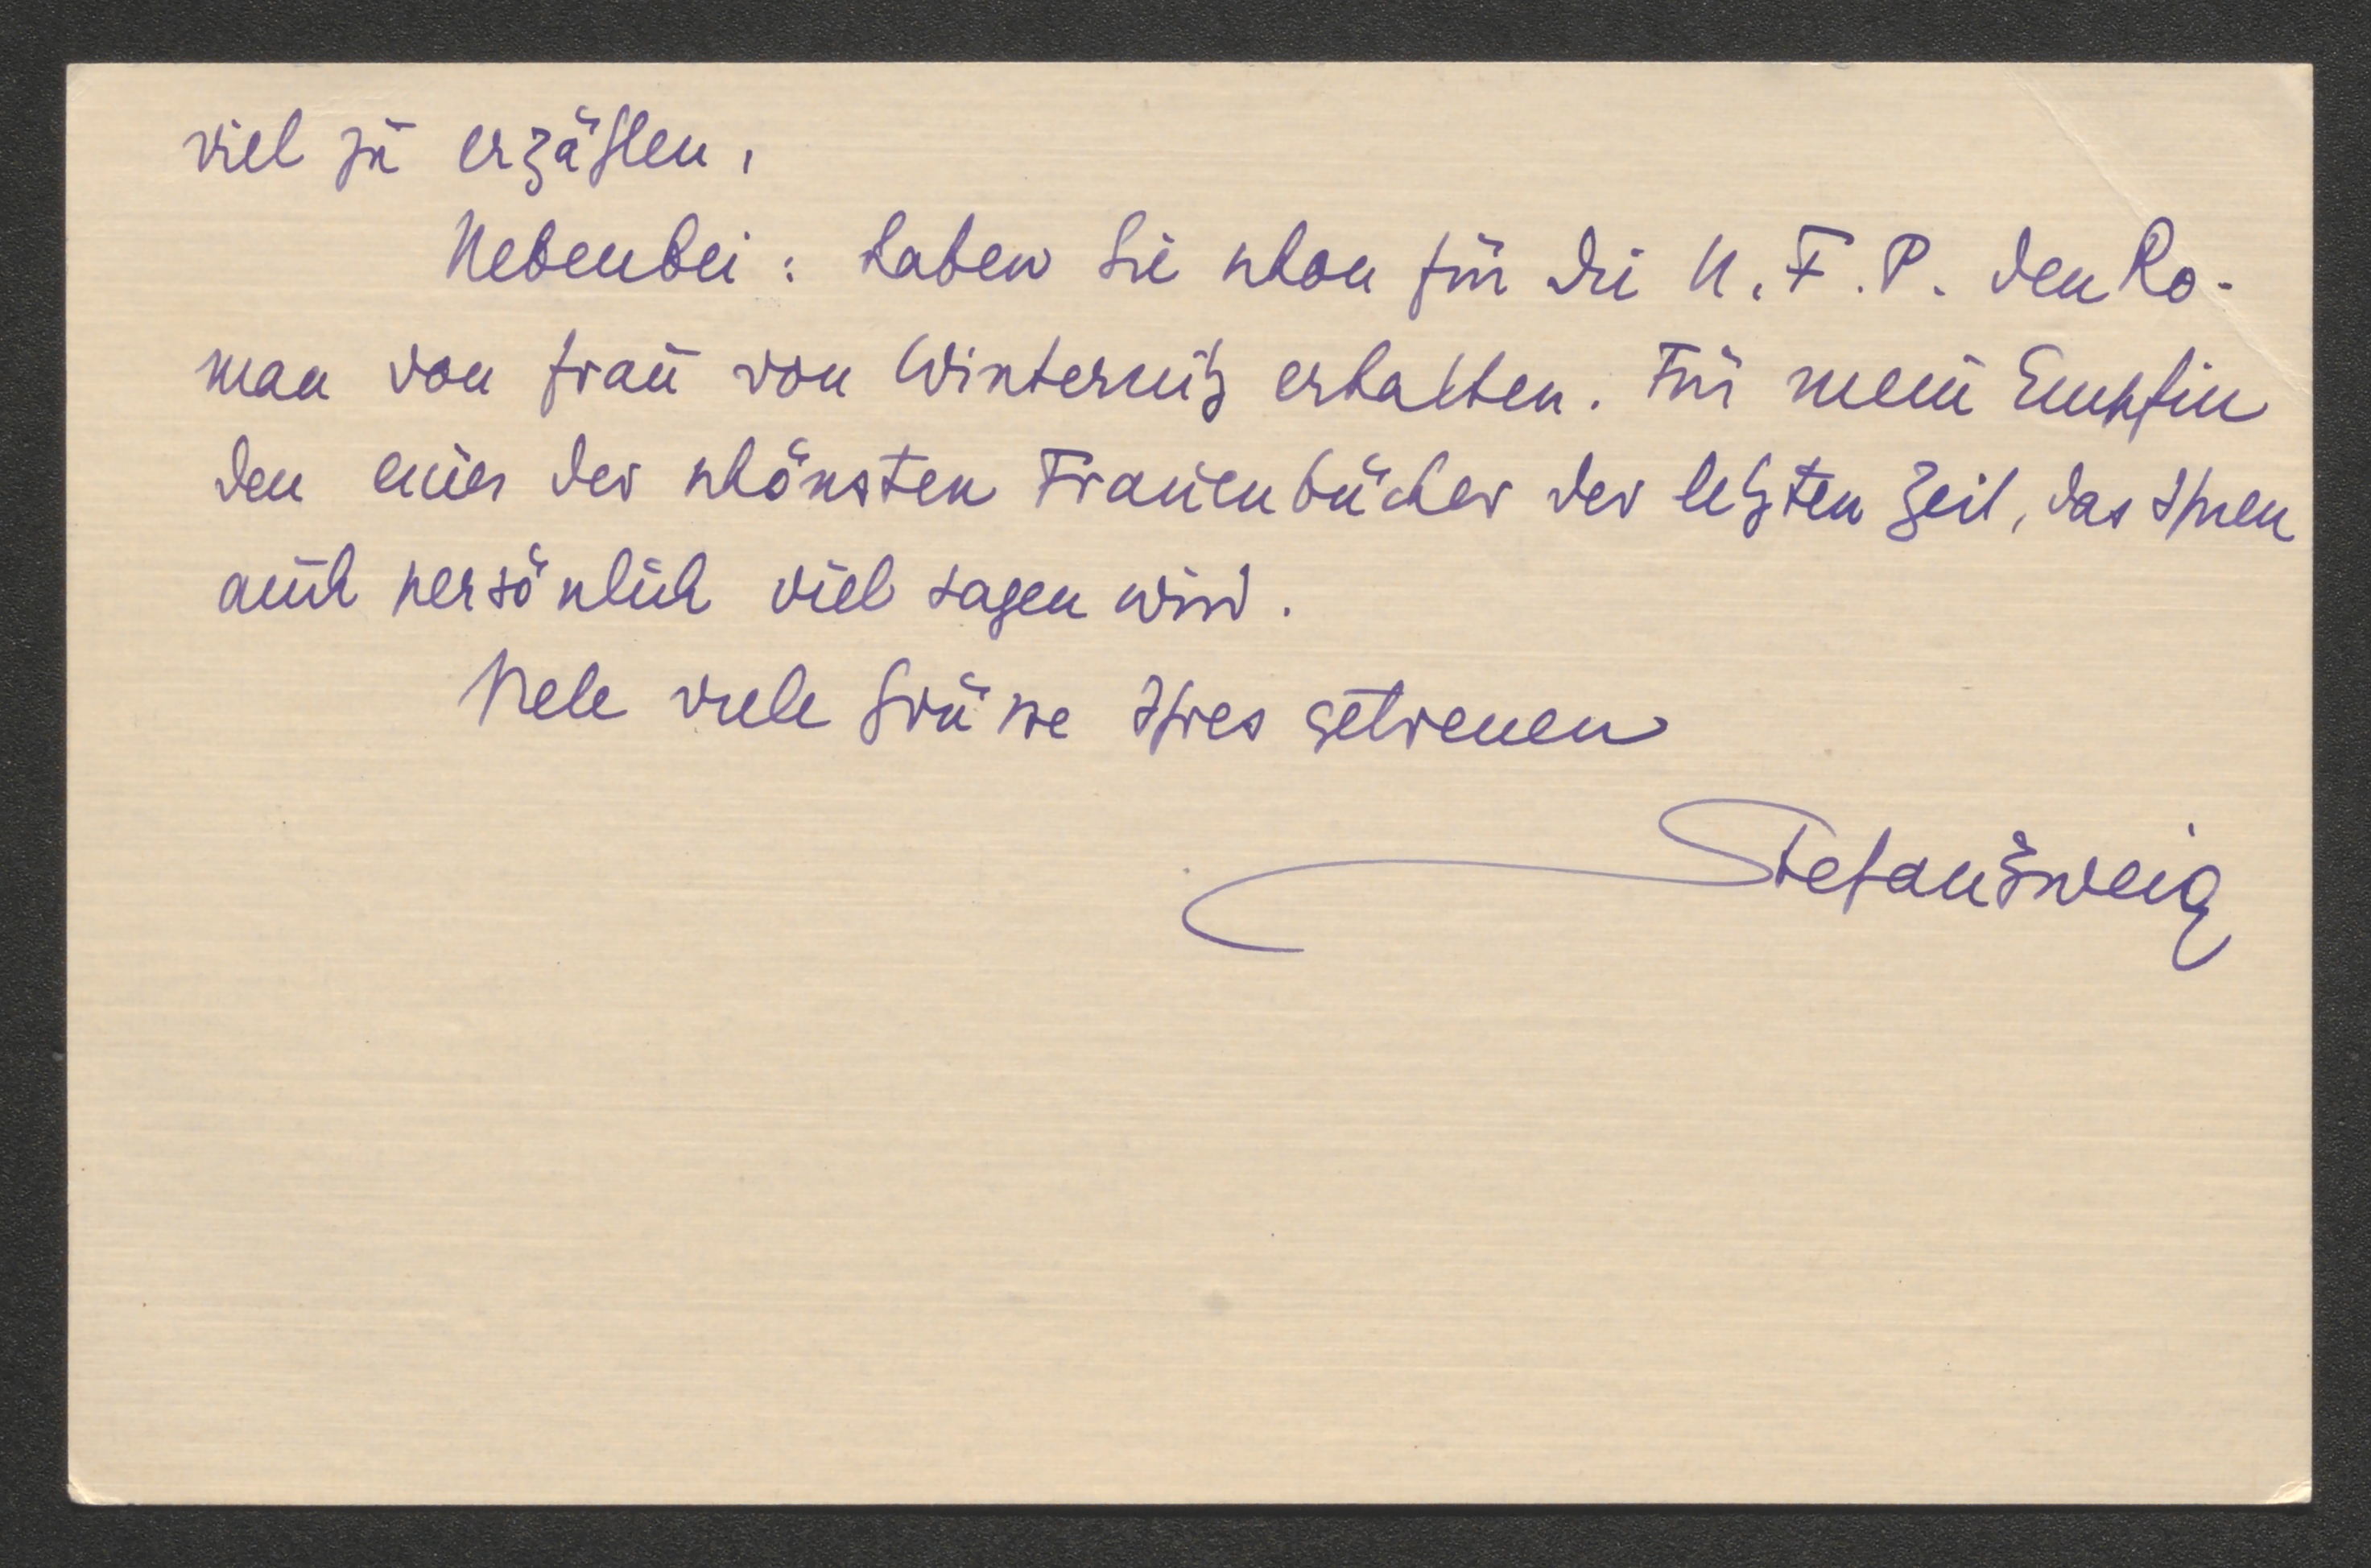 viel zu erzählen.
Nebenbei: haben Sie schon für die N. F. P. den Ro-
man von Frau von Winternitz erhalten. Für mein Empfin
den eines der schönsten Frauenbücher der letzten Zeit, das Ihnen
auch persönlich viel sagen wird.
Viele viele Grüsse Ihres getreuen
Stefan Zweig